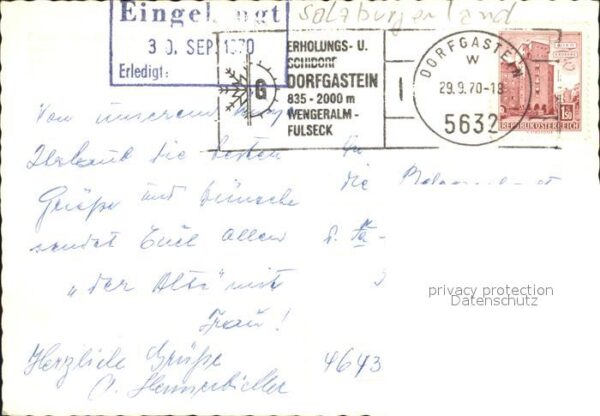 Salzburgerland
Eingelangt
30. SEP. 1970
Erledigt:
ERHOLUNGS- U.
SCHIDORF
DORFGASTEIN
835-2000 m
WENGERALM-
FULSECK
G
DORFGASTEIN
W
29.9.70-18
5632
1.50
REPUBLIK ÖSTERREICH
Von unserem
Urlaub die besten
Grüße und Wünsche
sendet Euch allen
„der Alte" mit
Frau!
Herzliche Grüße
die
4643
privacy protection
Datenschutz